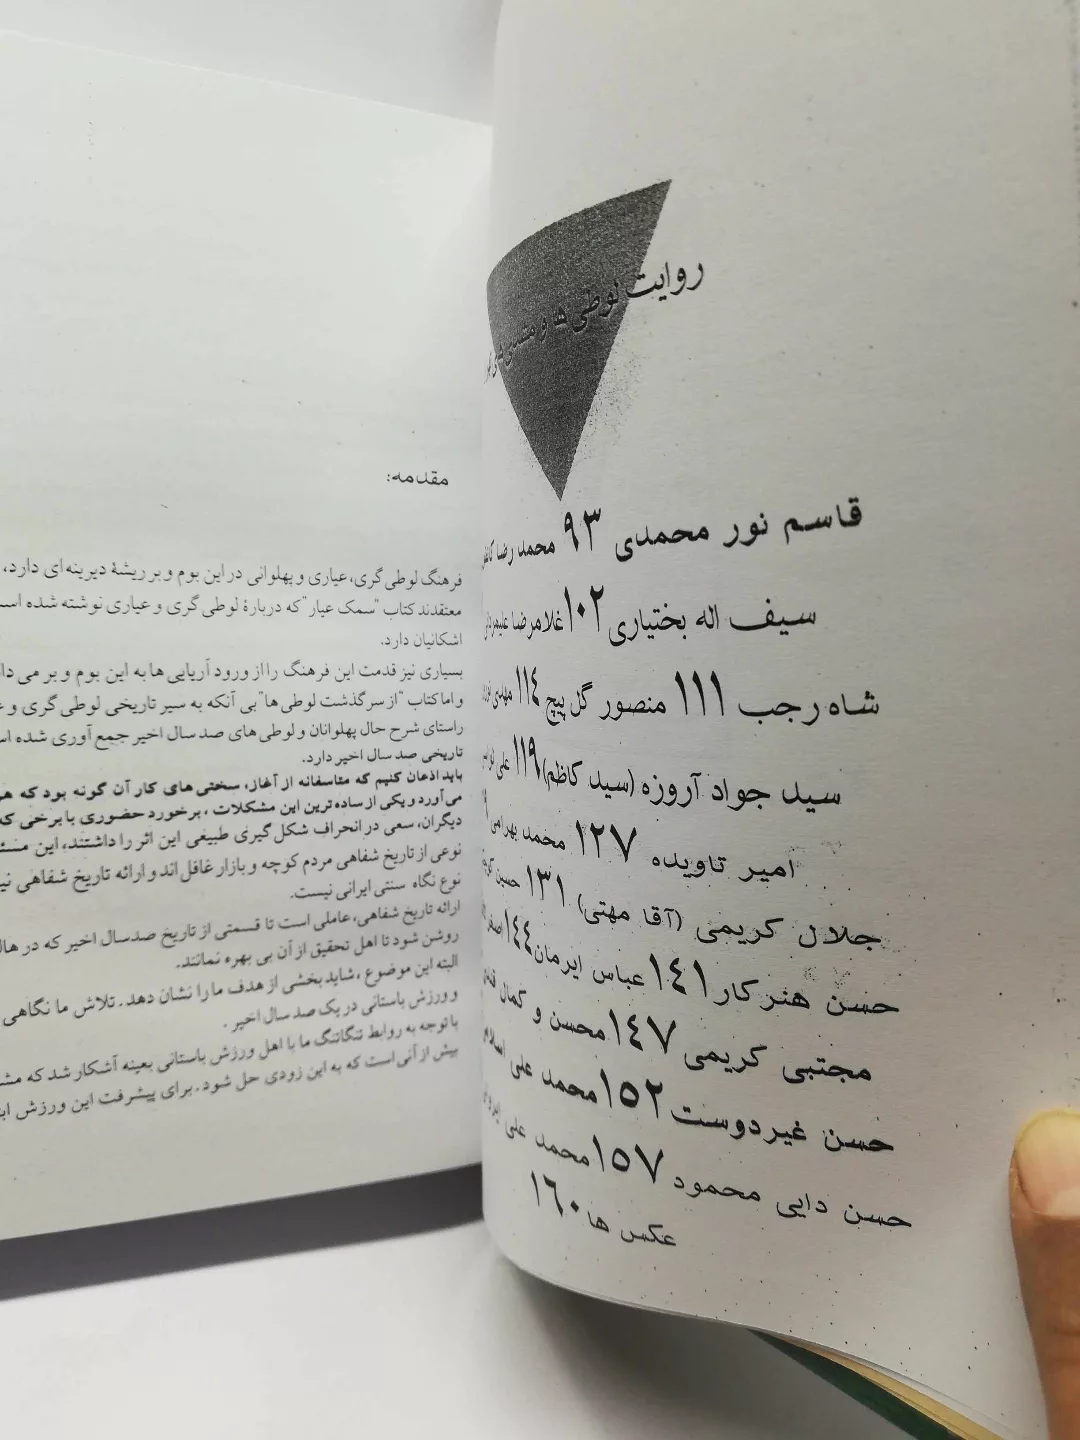 روایت لوطی ها و مشدی
قاسم نور محمدی ۹۳ محمد رضا
سیف اله بختیاری ۱۰۲ غلامرضا
شاه رجب ۱۱۱ منصور گل پیچ ۱۱۴ مهدی
سید جواد آروزه (سید کاظم) ۱۱۹ علی
امیر تاویده ۱۲۷ محمد بهرامی
جلال کریمی (آقا مهتی) ۱۳۱ حسین
حسن هنرکار ۱۴۱ عباس ایرمان ۱۴۴ اصغر
مجتبی کریمی ۱۴۷ محسن و کمال
حسن غیردوست ۱۵۲ محمد علی
حسن دایی محمود ۱۵۷ محمد علی
عکس ها ۱۶۰
مقدمه:
فرهنگ لوطی گری، عیاری و پهلوانی در این بوم و بر ریشهٔ دیرینه ای دارد،
معتقدند کتاب "سمک عیار" که دربارهٔ لوطی گری و عیاری نوشته شده
اشکانیان دارد.
بسیاری نیز قدمت این فرهنگ را از ورود آریایی ها به این بوم و بر می
و اما کتاب "از سرگذشت لوطی ها" بی آنکه به سیر تاریخی لوطی گری و
راستای شرح حال پهلوانان و لوطی های صد سال اخیر جمع آوری شده
تاریخی صد سال اخیر دارد.
باید اذعان کنیم که متاسفانه از آغاز، سختی های کار آن گونه بود که
می آورد و یکی از ساده ترین این مشکلات ، برخورد حضوری با برخی
دیگران، سعی در انحراف شکل گیری طبیعی این اثر را داشتند، این
نوعی از تاریخ شفاهی مردم کوچه و بازار غافل اند و ارائه تاریخ شفاهی
نوع نگاه سنتی ایرانی نیست.
ارائه تاریخ شفاهی، عاملی است تا قسمتی از تاریخ صدسال اخیر که در
روشن شود تا اهل تحقیق از آن بی بهره نمانند.
البته این موضوع ، شاید بخشی از هدف ما را نشان دهد . تلاش ما نگاهی
و ورزش باستانی در یک صد سال اخیر .
با توجه به روابط تنگاتنگ ما با اهل ورزش باستانی بعینه آشکار شد که
بیش از آنی است که به این زودی حل شود . برای پیشرفت این ورزش